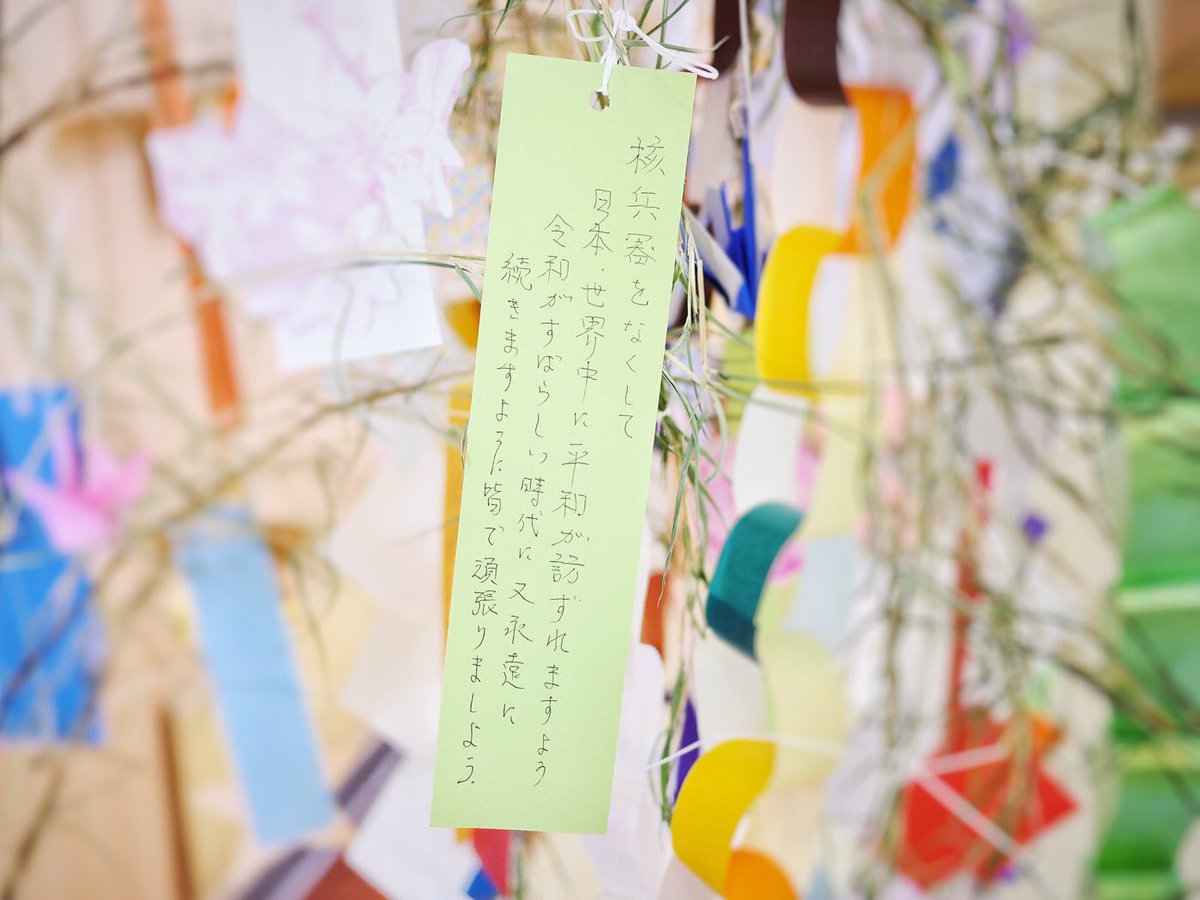 核兵器をなくして
日本・世界中に平和が訪ずれますよう
令和がすばらしい時代に又永遠に
続きますように皆で頑張りましょう.